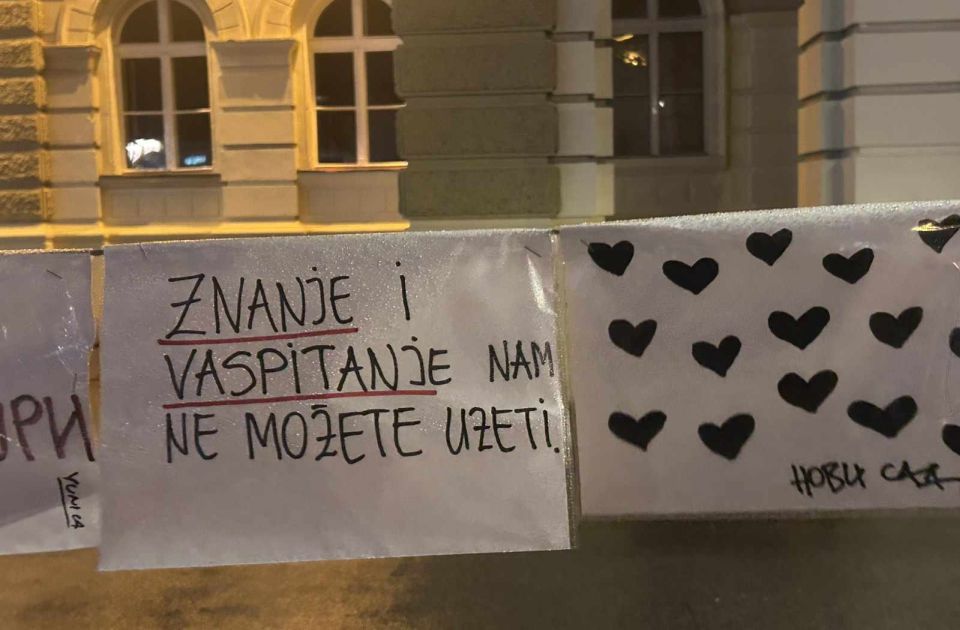 ZNANJE I
VASPITANJE NAM
NE MOŽETE UZETI.
НОВИ САД